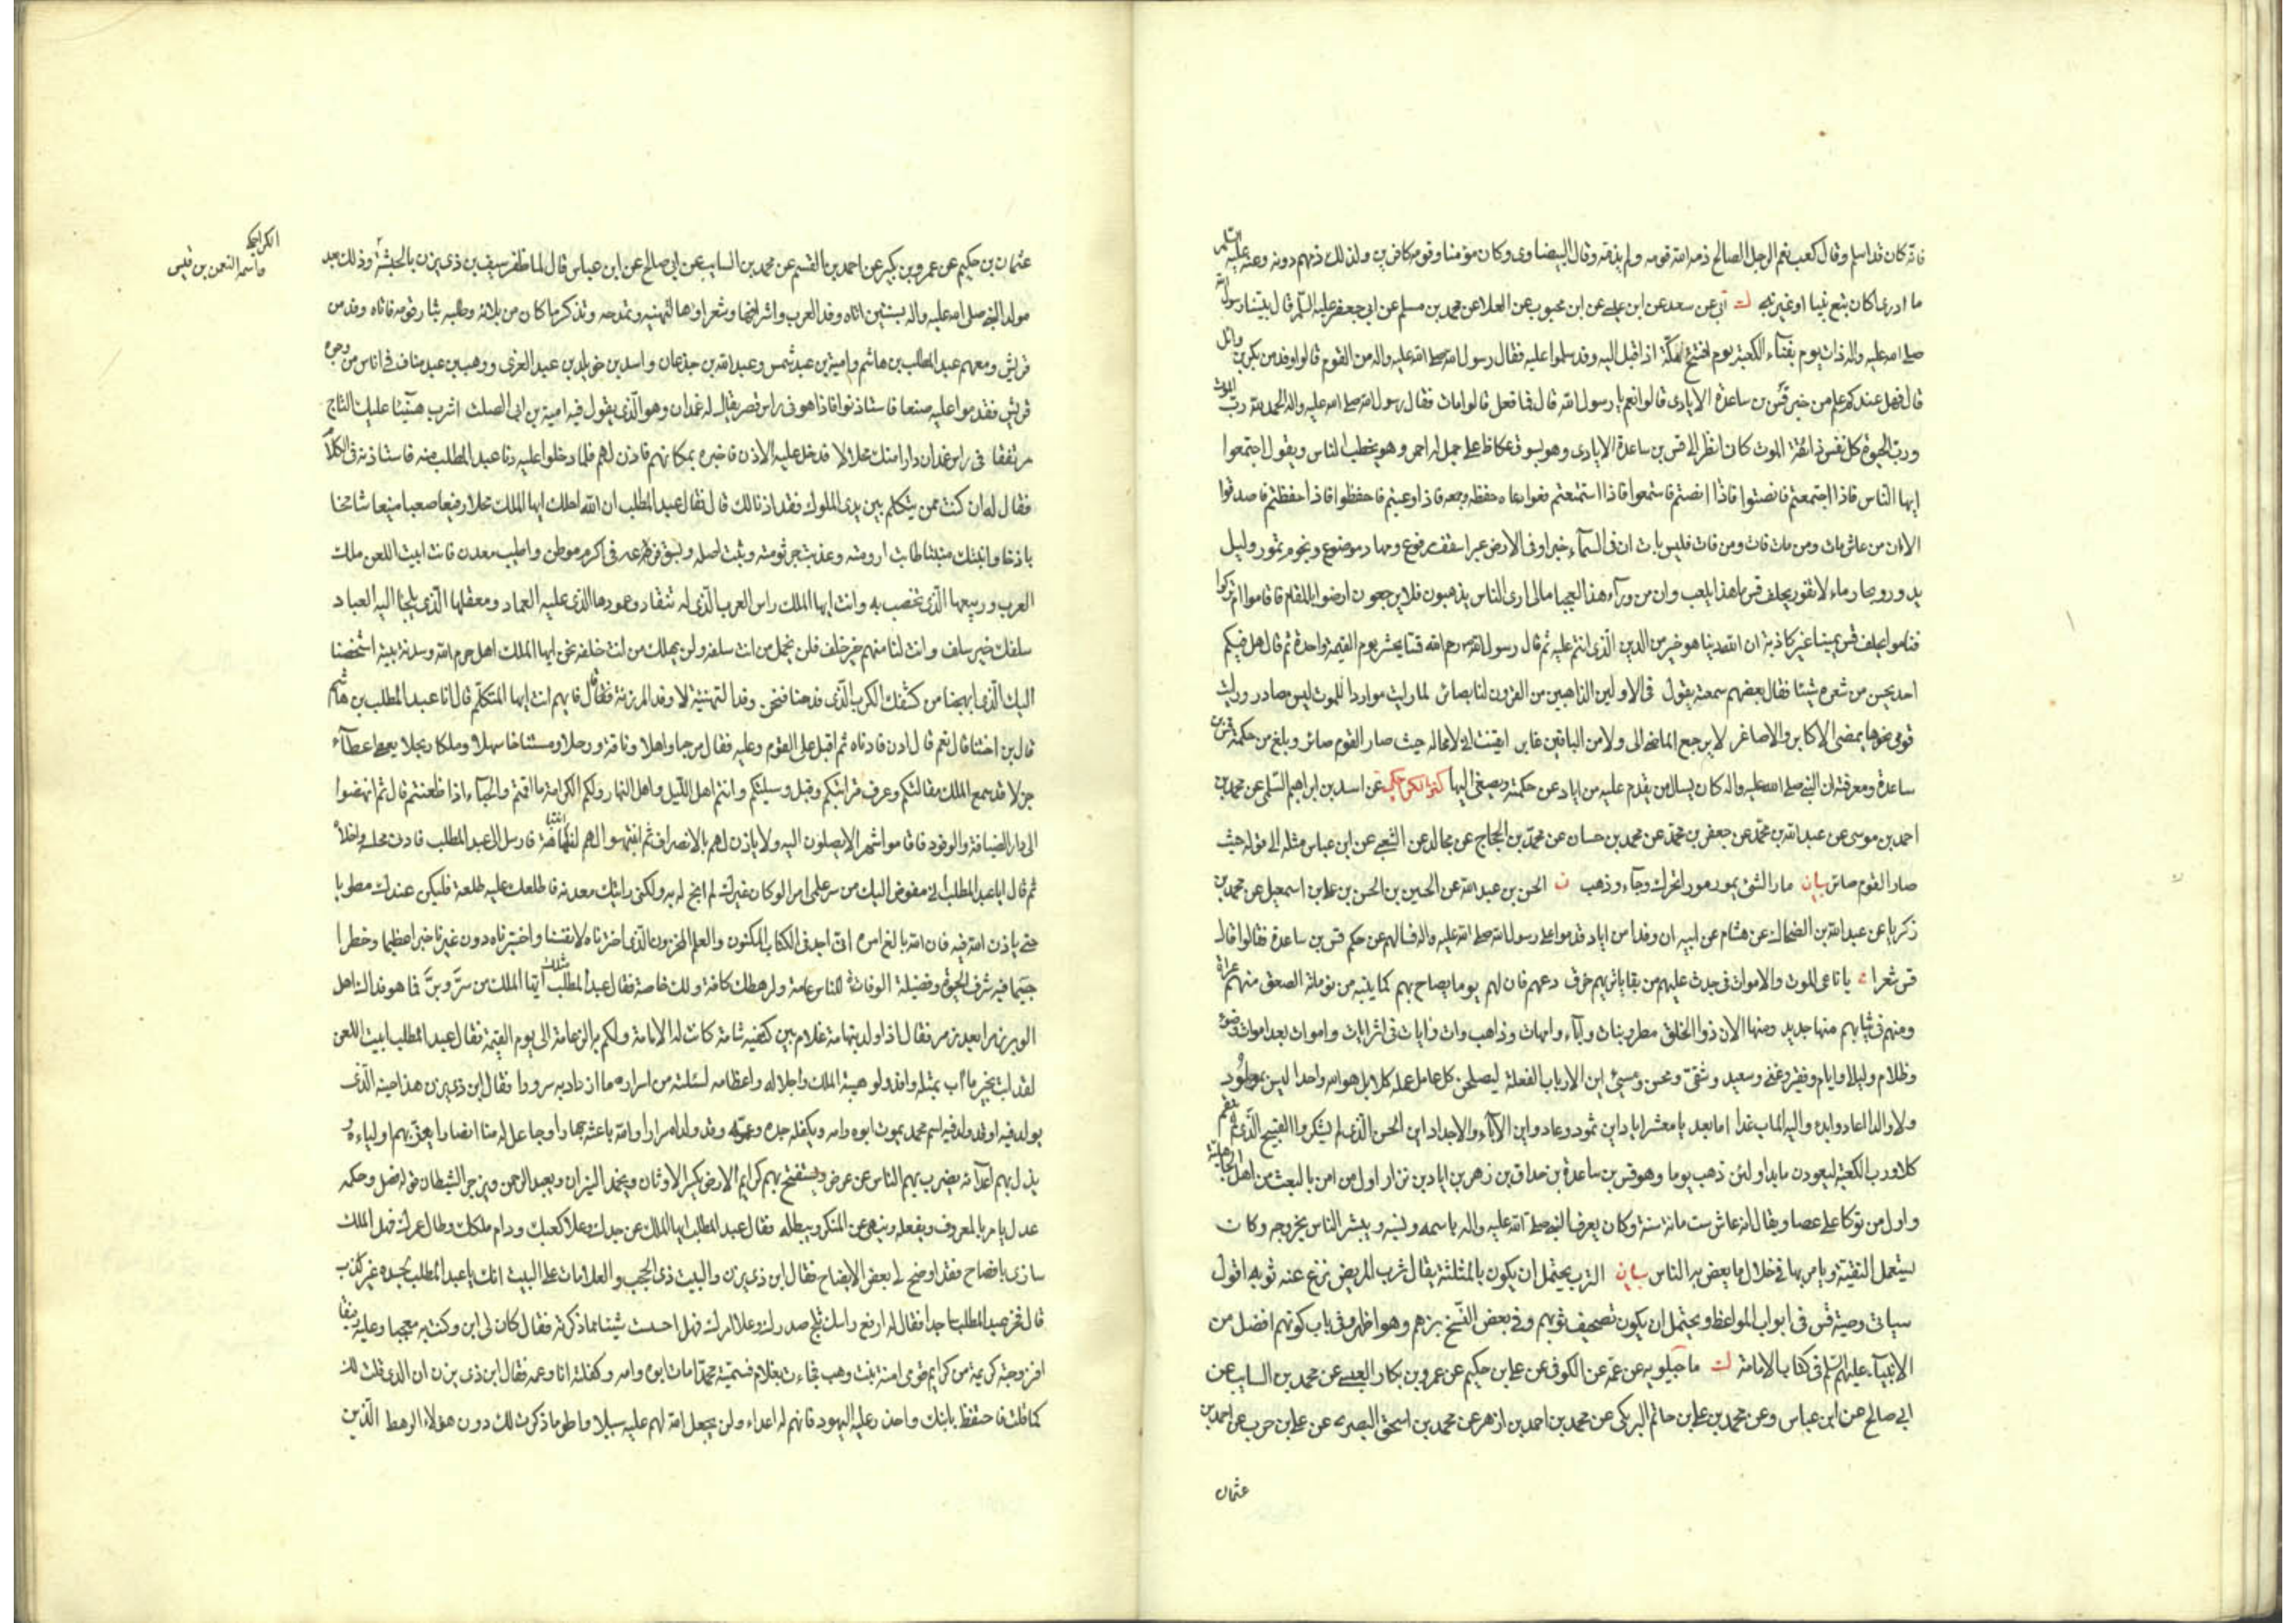 فانه كان قد اسلم وقال كعب نعم الرجل الصالح ذم الله قومه ولم يذمه وقال البيضاوى وكان مؤمنا وقومه كافرين ولذلك ذمهم دونه وعنه عليه السلم
ما ادرى اكان تبع نبيا او غير نبى ك ابى عن سعد عن ابن عيسى عن ابن محبوب عن العلا عن محمد بن مسلم عن ابى جعفر عليه السلم قال بينا رسول الله
صلى الله عليه واله ذات يوم بفناء الكعبة يوم افتتح مكة اذ اقبل اليه وفد سلموا عليه فقال رسول الله صلى الله عليه واله من القوم قالوا وفد من بكر بن وائل
قال فهل عندكم علم من خبر قس بن ساعدة الايادى قالوا نعم يا رسول الله قال فما فعل قالوا مات فقال رسول الله صلى الله عليه واله الحمد لله رب الموت
ورب الحيوة كل نفس ذائقة الموت كانى انظر الى قس بن ساعدة الايادى وهو بسوق عكاظ على جمل له احمر وهو يخطب الناس ويقول اجتمعوا
ايها الناس فاذا اجتمعتم فانصتوا فاذا انصتم فاستمعوا فاذا استمعتم فعوا فاذا وعيتم فاحفظوا فاذا حفظتم فاصدقوا
الا ان من عاش مات ومن مات فات ومن فات فليس بات ان فى السماء خبرا وفى الارض عبرا سقف مرفوع ومهاد موضوع ونجوم تمور وليل
يدور وبحار ماء لا تغور يحلف قس ما هذا بلعب وان من وراء هذا لعجبا مالى ارى الناس يذهبون فلا يرجعون ارضوا بالمقام فاقاموا ام تركوا
فناموا يحلف قس يمينا غير كاذبة ان لله دينا هو خير من الدين الذى انتم عليه ثم قال رسول الله رحم الله قسا يحشر يوم القيمة امة واحدة ثم قال هل فيكم
احد يحسن من شعره شيئا فقال بعضهم سمعته يقول فى الاولين الذاهبين من القرون لنا بصائر لما رايت مواردا للموت ليس مصادر ورايت
قومى نحوها يمضى الاكابر والاصاغر لا يرجع الماضى الى ولا من الباقين غابر ايقنت انى لا محالة حيث صار القوم صائر وبلغ من حكمة قس بن
ساعدة ومعرفته ان النبى صلى الله عليه واله كان يسال من يقدم عليه من اياد عن حكمته ويصغى اليها كنز الكراجكى عن اسد بن ابراهيم السلمى عن محمد بن
احمد بن موسى عن عبد الله بن محمد عن جعفر بن محمد عن محمد بن حسان عن محمد بن الحجاج عن مجالد عن الشعبى عن ابن عباس مثله الى قوله حيث
صار القوم صائر بيان مار الشئ يمور مورا تحرك وجاء وذهب ن الحسن بن عبد الله عن الحسين بن الحسن بن على بن اسمعيل عن محمد بن
زكريا عن عبد الله بن الضحاك عن هشام عن ابيه ان وفدا من اياد قدموا على رسول الله صلى الله عليه واله فسالهم عن حكم قس بن ساعدة فقالوا قال
قس شعرا يا ناعى الموت والاموات فى جدث عليهم من بقايا بزهم خرق دعهم فان لهم يوما يصاح بهم كما ينبه من نوماته الصعق منهم عراة
ومنهم فى ثيابهم منها جديد ومنها الان ذو الخلق مطر ونبات واباء وامهات وذاهب وات وايات فى اثر ايات واموات بعد اموات ضوء
وظلام وليال وايام وفقير وغنى وسعيد وشقى ومحسن ومسئ اين الارباب الفعلة ليصلحن كل عامل عمله كلا بل هو الله واحد ليس بمولود
ولا والد اعاد وابدى واليه الماب غدا اما بعد يا معشر اياد اين ثمود وعاد واين الاباء والاجداد اين الحسن الذى لم يشكر والقبيح الذى لم ينقم
كلا ورب الكعبة ليعودن ما بدا ولئن ذهب يوم وهو قس بن ساعدة بن حداق بن زهر بن اياد بن نزار اول من امن بالبعث من اهل الجاهلية
واول من توكا على عصا ويقال انه عاش ست مائة سنة وكان يعرف النبى صلى الله عليه واله باسمه ونسبه ويبشر الناس بخروجه وكان
يستعمل التقية ويامر بها فى خلال ما يعظ به الناس بيان الثرب يحتمل ان يكون بالمثلثة يقال ثرب المريض نزع عنه ثوبه اقول
سياتى وصية قس فى ابواب المواعظ ويحتمل ان يكون تصحيف ثوبهم وفى بعض النسخ بزهم وهو اظهر وفى باب كونهم افضل من
الانبياء عليهم السلم فى كتاب الامامة ك ماجيلويه عن عمه عن الكوفى عن على بن حكيم عن عمرو بن بكار العبسى عن محمد بن السايب عن
ابى صالح عن ابن عباس وعن محمد بن على بن حاتم البرمكى عن محمد بن احمد بن ازهر عن محمد بن اسحق البصرى عن على بن حرب عن احمد بن
عثمان
عثمان بن حكيم عن عمرو بن بكير عن احمد بن القسم عن محمد بن السايب عن ابى صالح عن ابن عباس قال لما ظفر سيف بن ذى يزن بالحبشة وذلك بعد
مولد النبى صلى الله عليه واله بسنتين اتاه وفد العرب واشرافها وشعراؤها لتهنيه وتمدحه وتذكر ما كان من بلائه وطلبه بثار قومه فاتاه وفد من
قريش ومعهم عبد المطلب بن هاشم وامية بن عبد شمس وعبد الله بن جذعان واسد بن خويلد بن عبد العزى ووهب بن عبد مناف فى اناس من وجوه
قريش فقدموا عليه صنعا فاستاذنوا فاذا هو فى راس قصر يقال له غمدان وهو الذى يقول فيه امية بن ابى الصلت اشرب هنيئا عليك التاج
مرتفقا فى راس غمدان دارا منك محلالا فدخل عليه الاذن فاخبره بمكانهم فاذن لهم فلما دخلوا عليه دنا عبد المطلب منه فاستاذنه فى الكلام
فقال له ان كنت ممن يتكلم بين يدى الملوك فقد اذنا لك قال فقال عبد المطلب ان الله احلك ايها الملك محلا رفيعا صعبا منيعا شامخا
باذخا وانبتك منبتا طابت ارومته وعذبت جرثومته وثبت اصله وبسق فرعه فى اكرم موطن واطيب معدن فانت ابيت اللعن ملك
العرب وربيعها الذى تخصب به وانت ايها الملك راس العرب الذى له تنقاد وعمودها الذى عليه العماد ومعقلها الذى يلجا اليه العباد
سلفك خير سلف وانت لنا منهم خير خلف فلن يخمل من انت سلفه ولن يهلك من انت خلفه نحن ايها الملك اهل حرم الله وسدنة بيته اشخصنا
اليك الذى ابهجنا من كشفك الكرب الذى فدحنا فنحن وفد التهنية لا وفد المرزئة قال فايهم انت ايها المتكلم قال انا عبد المطلب بن هاشم
قال بن اختنا قال نعم قال ادن فادناه ثم اقبل على القوم وعليه فقال مرحبا واهلا وناقة ورحلا ومستناخا سهلا وملكا ربحلا يعطى عطاء
جزلا قد سمع الملك مقالتكم وعرف قرابتكم وقبل وسيلتكم وانتم اهل الليل واهل النهار ولكم الكرامة ما اقمتم والحباء اذا ظعنتم قال ثم انهضوا
الى دار الضيافة والوفود فاقاموا شهرا لا يصلون اليه ولا ياذن لهم بالانصراف ثم انتبه لهم انتباهة فارسل الى عبد المطلب فادنى مجلسه واخلاه
ثم قال له يا عبد المطلب انى مفوض اليك من سر علمى امرا لو كان غيرك لم ابح له به ولكنى رايتك معدنه فاطلعك عليه طلعة فليكن عندك مطويا
حتى ياذن الله فيه فان الله بالغ امره انى اجد فى الكتاب المكنون والعلم المخزون الذى اخترناه لانفسنا واخترناه دون غيرنا خبرا عظيما وخطرا
جسيما فيه شرف الحيوة وفضيلة الوفاة للناس عامة ولرهطك كافة ولك خاصة فقال عبد المطلب مثلك ايها الملك من سر وبر فما هو فداك اهل
الوبر زمرا بعد زمر فقال اذا ولد بتهامة غلام بين كتفيه شامة كانت له الامامة ولكم به الزعامة الى يوم القيمة فقال عبد المطلب ابيت اللعن
لقد ابت بخبر ما اب بمثله وافد ولولا هيبة الملك واجلاله واعظامه لسئلته من اسراره ما ازداد به سرورا فقال ابن ذى يزن هذا حينه الذى
يولد فيه او قد ولد فيه اسمه محمد يموت ابوه وامه ويكفله جده وعمه وقد ولد سرارا والله باعثه جهارا وجاعل له منا انصارا يعز بهم اولياءه
ويذل بهم اعداءه يضرب بهم الناس عن عرض ويستفتح بهم كرايم الارض يكسر الاوثان ويخمد النيران ويعبد الرحمن ويزجر الشيطان قوله فصل وحكمه
عدل يامر بالمعروف ويفعله وينهى عن المنكر ويبطله فقال عبد المطلب ايها الملك عز جدك وعلا كعبك ودام ملكك وطال عمرك فهل الملك
سارى بافصاح فقد اوضح لى بعض الايضاح فقال ابن ذى يزن والبيت ذى الحجب والعلامات على البيت انك يا عبد المطلب لجده غير كذب
قال فخر عبد المطلب ساجدا فقال له ارفع راسك ثلج صدرك وعلا امرك فهل احسست شيئا مما ذكرته فقال كان لى ابن وكنت به معجبا وعليه رفيقا
فزوجته كريمة من كرايم قومى امنة بنت وهب فجاءت بغلام فسميته محمدا مات ابوه وامه وكفلته انا وعمه فقال ابن ذى يزن ان الذى قلت لك
كما قلت فاحتفظ بابنك واحذر عليه اليهود فانهم له اعداء ولن يجعل الله لهم عليه سبيلا واطو ما ذكرت لك دون هؤلاء الرهط الذين
الكراجكى
واسمه النعمن بن قيس